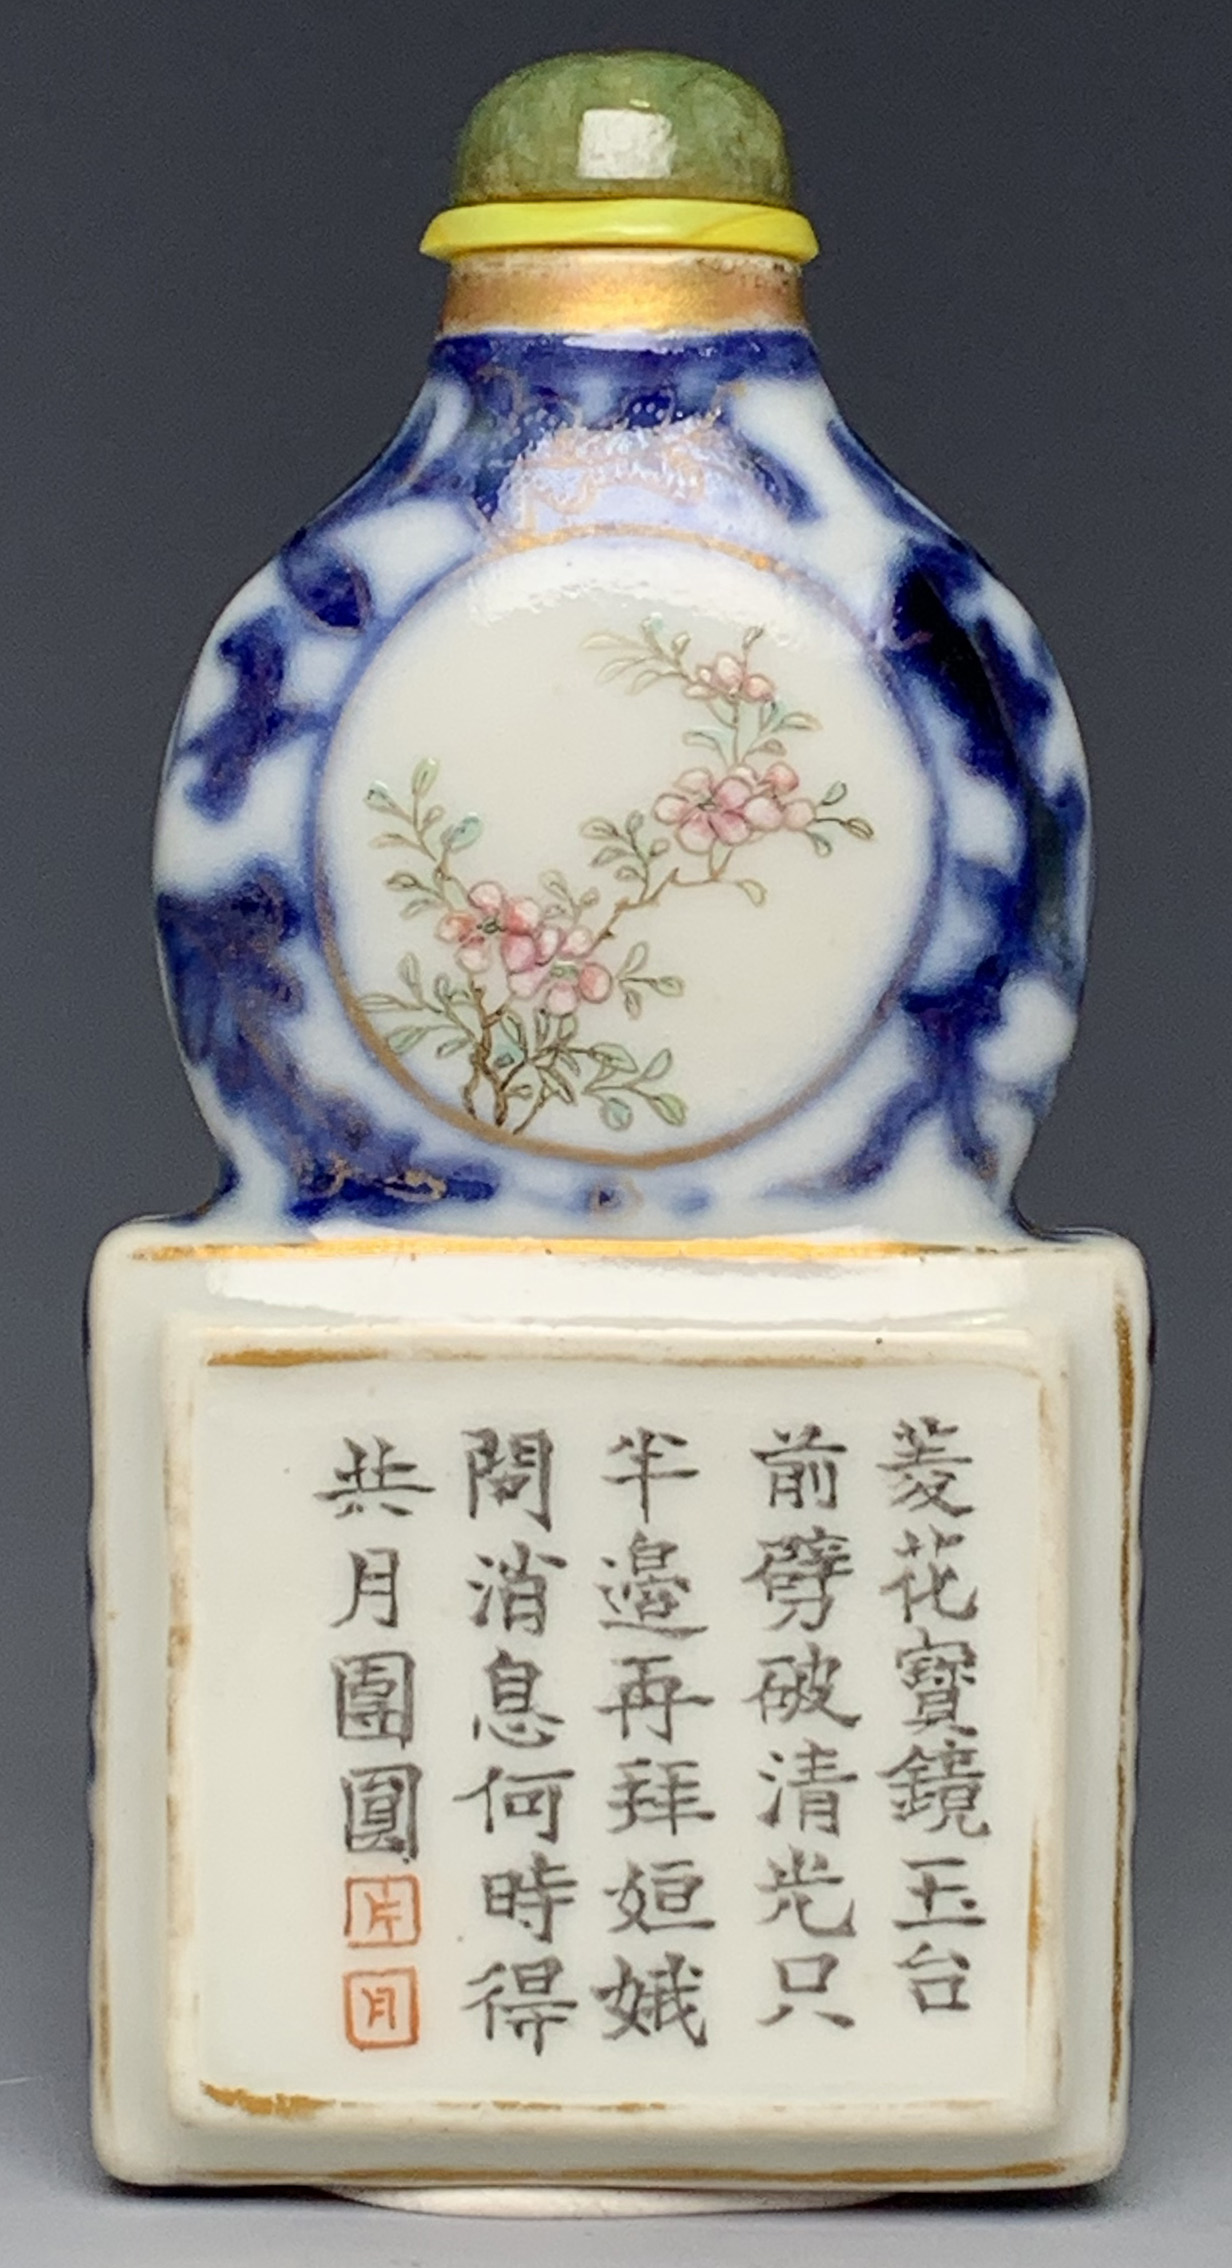 菱花寶鏡玉台
前劈破清光只
半邉再拜姮娥
問消息何時得
共月團圓